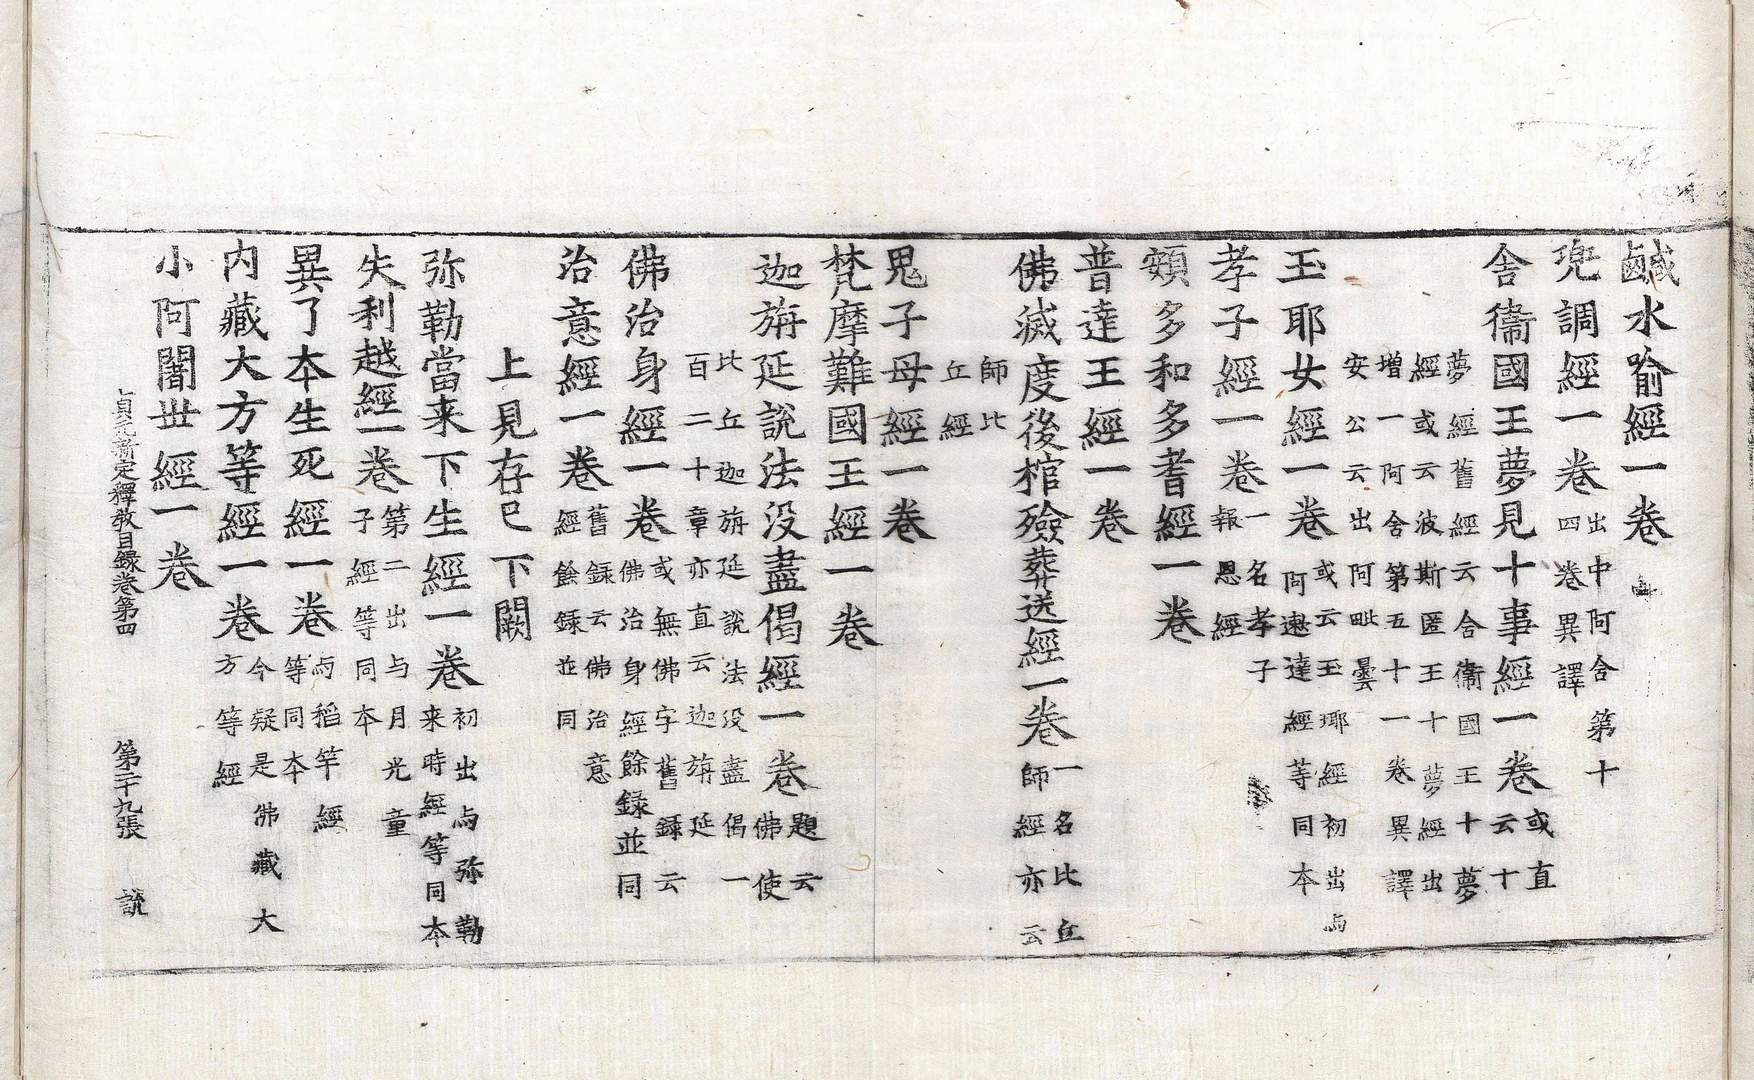 鹹水喻經一卷
兜調經一卷 出中阿含第十四卷異譯
舍衛國王夢見十事經一卷 或直云十
夢經舊經云舍衛國王十夢
經或云波斯匿王十夢經出
增一阿含第五十一卷異譯
安公云出阿毗曇
玉耶女經一卷 或云玉瑘經初出与阿遬達經等同本
孝子經一卷 一名孝子報恩經
頞多和多耆經一卷
普達王經一卷
佛滅度後棺殮葬送經一卷 一名比丘師經亦云
師比丘經
鬼子母經一卷
梵摩難國王經一卷
迦旃延說法沒盡偈經一卷 題云佛使
比丘迦旃延說法沒盡偈一
百二十章亦直云迦旃延
佛治身經一卷 或無佛字舊録云佛治身經餘録並同
治意經一卷 舊録云佛治意經餘録並同
上見存已下闕
弥勒當来下生經一卷 初出与弥勒来時經等同本
失利越經一卷 第二出与月光童子經等同本
異了本生死經一卷 与稻竿經等同本
内藏大方等經一卷 今疑是佛藏大方等經
小阿闍世經一卷
貞元新定釋教目録卷第四 第二十九張 說